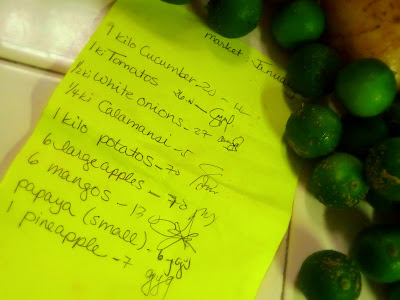 market: January
1 kilo Cucumber 20
1 ki Tomatos 26
1/2 ki White onions - 27
1/4 ki Calamansi - 5
1 kilo potatos - 70
6 large apples - 78
6 mangos - 13
papaya (small) - 6
1 pineapple - 7